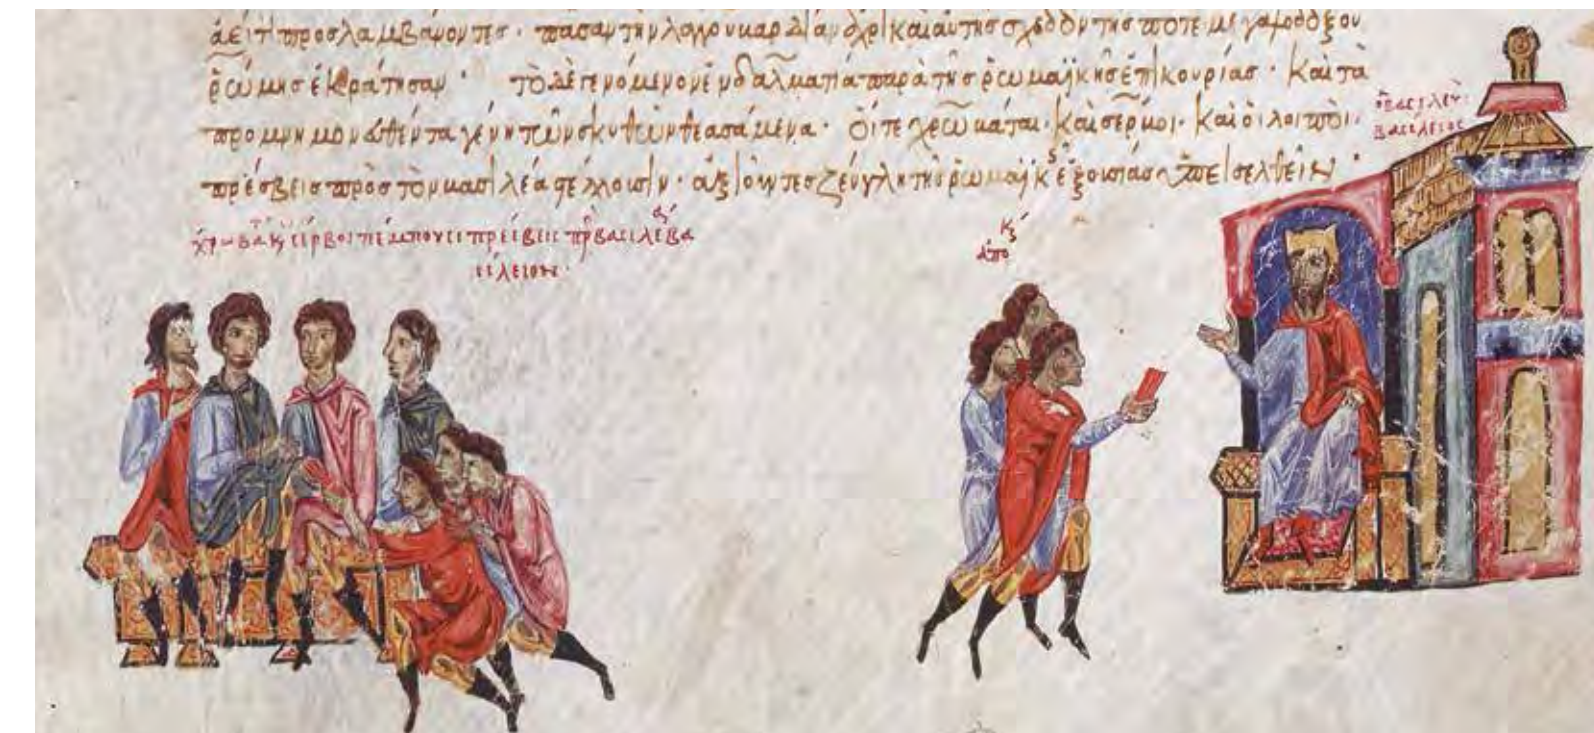 ἀεί τι προσλαμβάνοντες· πᾶσαν τὴν λαγγουβαρδίαν ἄχρι καὶ αὐτῆς σχεδὸν τῆς ποτε μεγαλοδόξου
ῥώμης ἐκράτησαν· τὸ δὲ γενόμενον ἐν δαλματία παρὰ τῆς ῥωμαϊκῆς ἐπικουρίας· καὶ τὰ
προμνημονευθέντα γένη τῶν σκυθῶν θεασάμενα· οἵ τε χρωβάται· καὶ σέρβοι· καὶ οἱ λοιποί·
πρέσβεις πρὸς τὸν βασιλέα στέλλουσιν· ἀξιοῦντες ζεύγλη τῆς ῥωμαϊκῆς ἐξουσίας ὑπεισελθεῖν·
ὁ βασιλεὺς
βασίλειος
σέρβοι πέμπουσι πρέσβεις πρ βασιλέα βα
σίλειον·